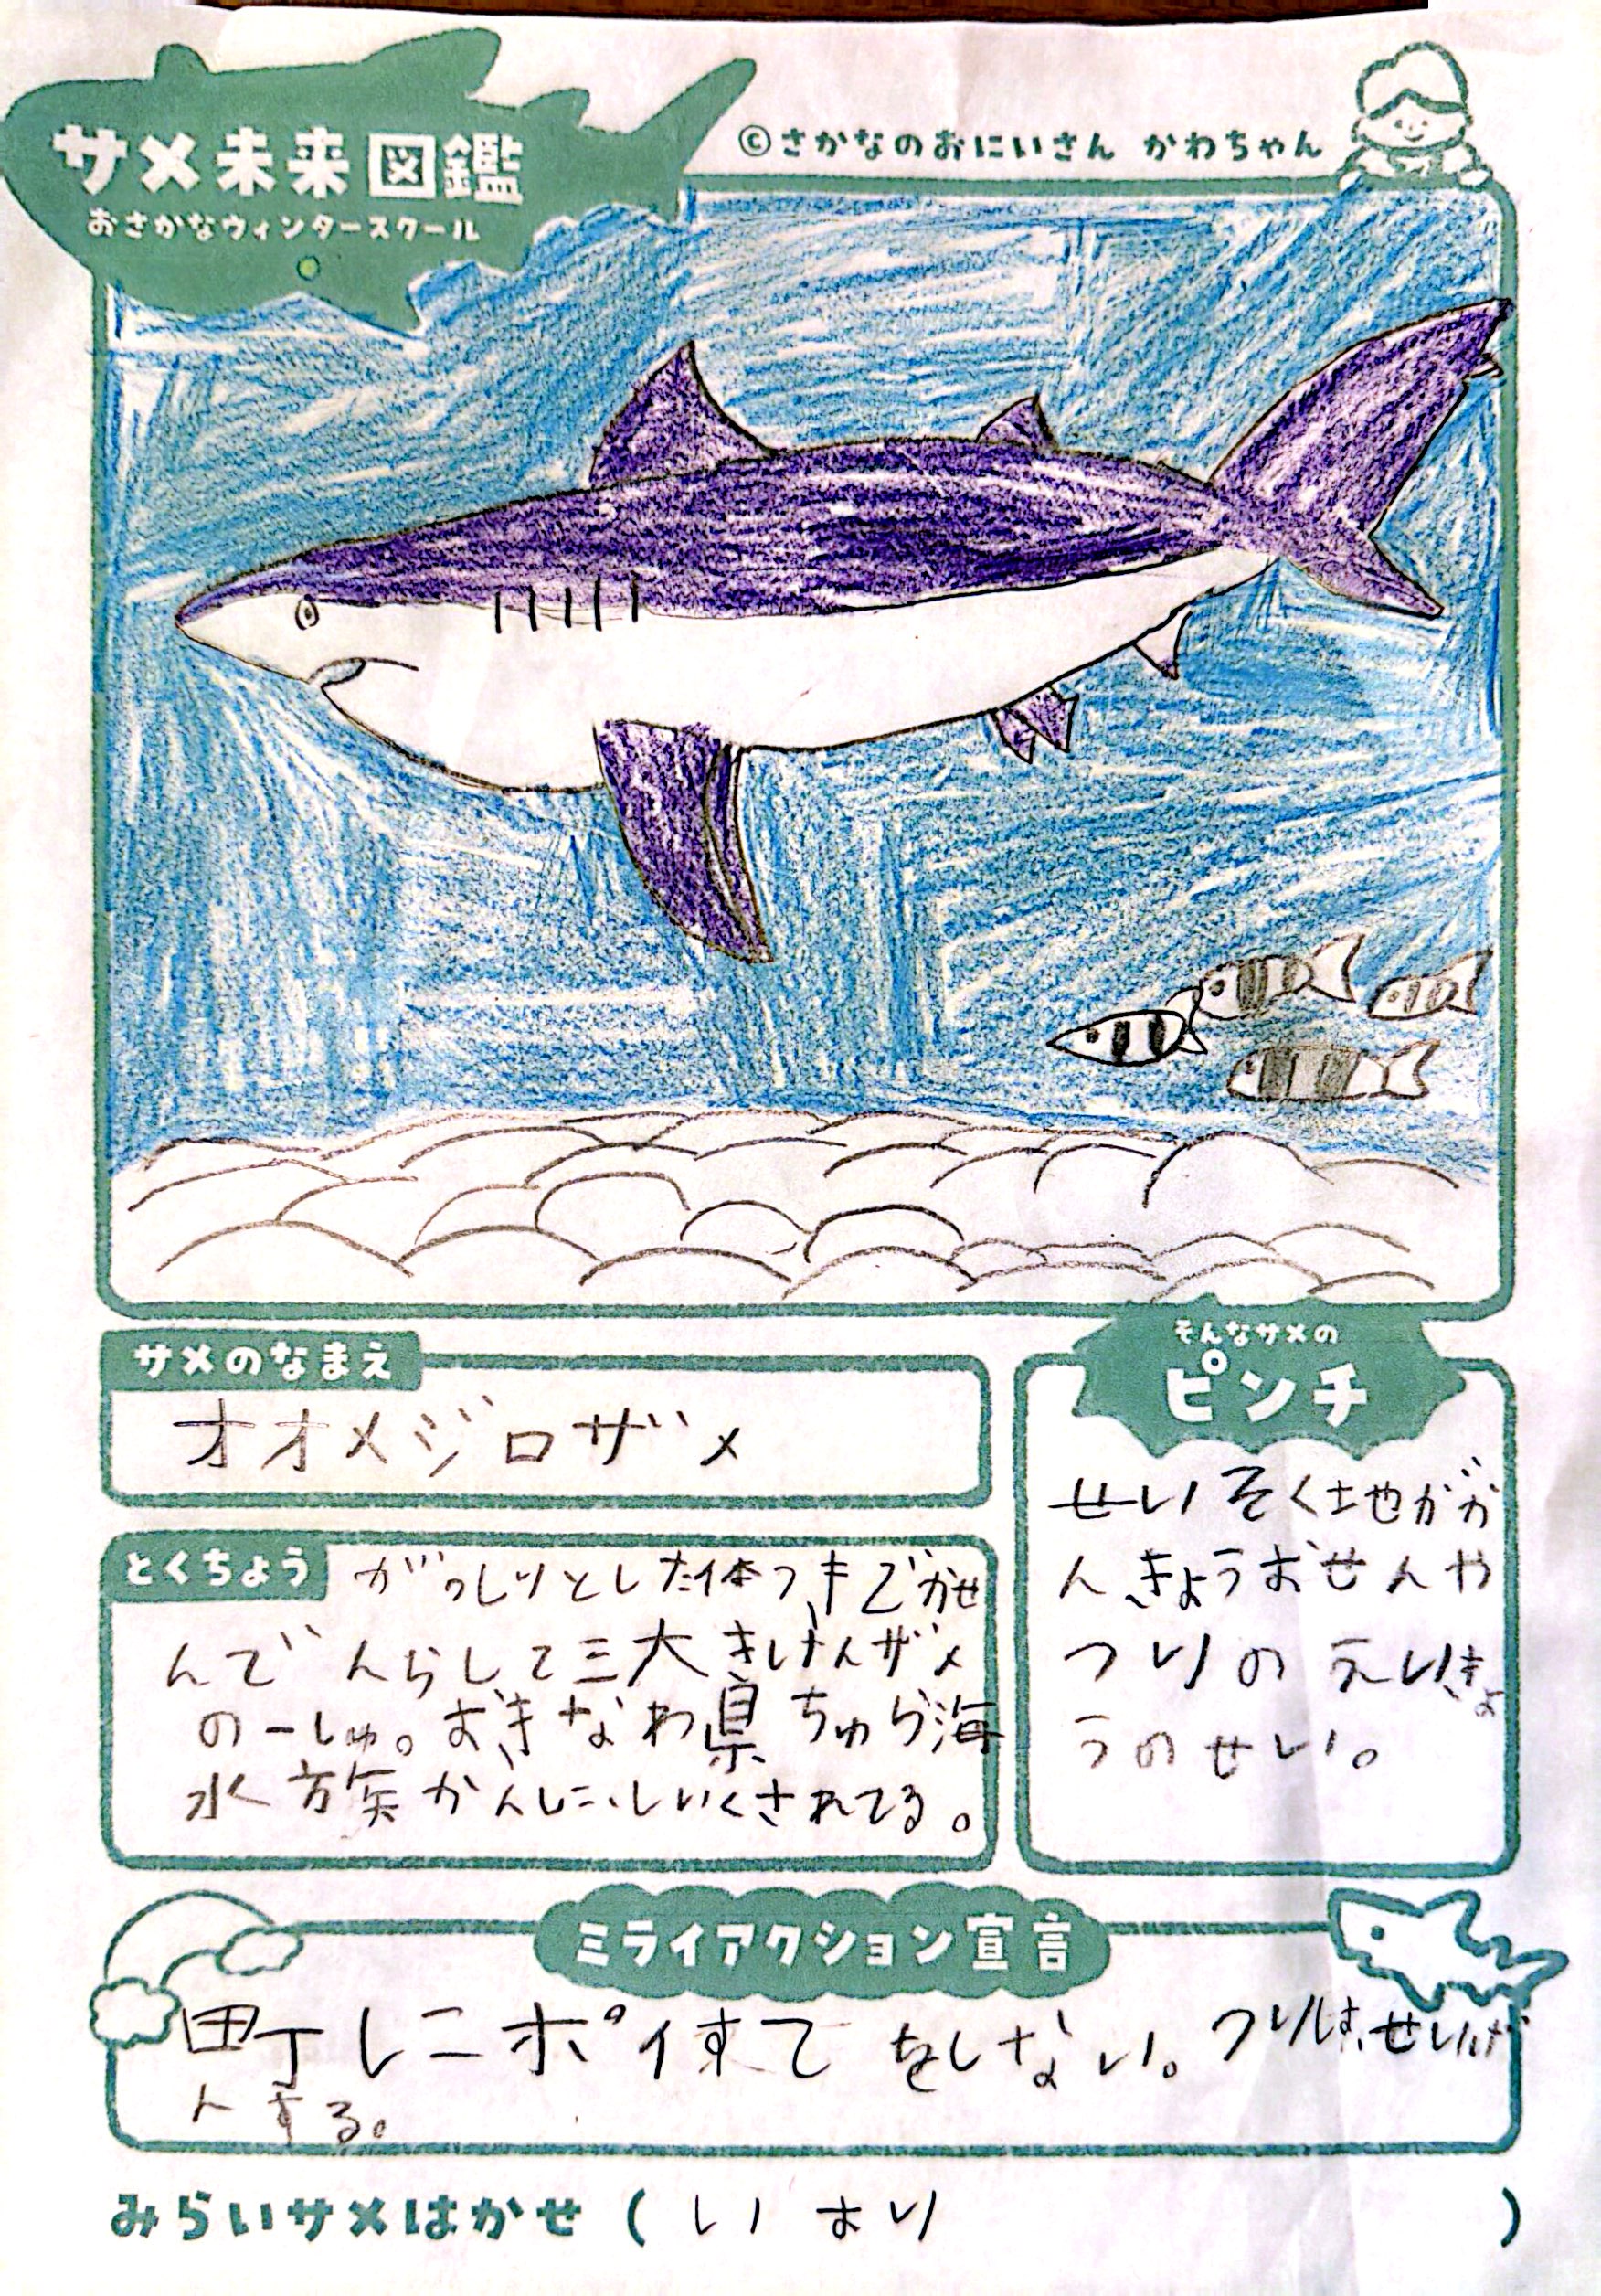 サメ未来図鑑
おさかなウィンタースクール
©さかなのおにいさん かわちゃん
サメのなまえ
オオメジロザメ
とくちょう
がっしりとした体つきでかせ
んでくらして三大きけんザメ
の一しゅ。おきなわ県ちゅら海
水族かんにしいくされてる。
そんなサメの
ピンチ
せいそく地がか
んきょうおせんや
つりのえいきょ
うのせい。
ミライアクション宣言
町にポイすてをしない。つりはせいげ
んする。
みらいサメはかせ ( いおり )